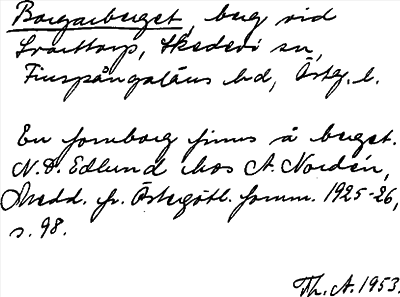 Borgarberget, berg vid
Svarttorp, Skedevi sn,
Finspångaläns hd, Östg. l.
En fornborg finns å berget.
N. D. Edlund hos A. Nordén,
Medd. fr. Östergötl. fornm. 1925-26,
s. 98.
Th. A. 1953.